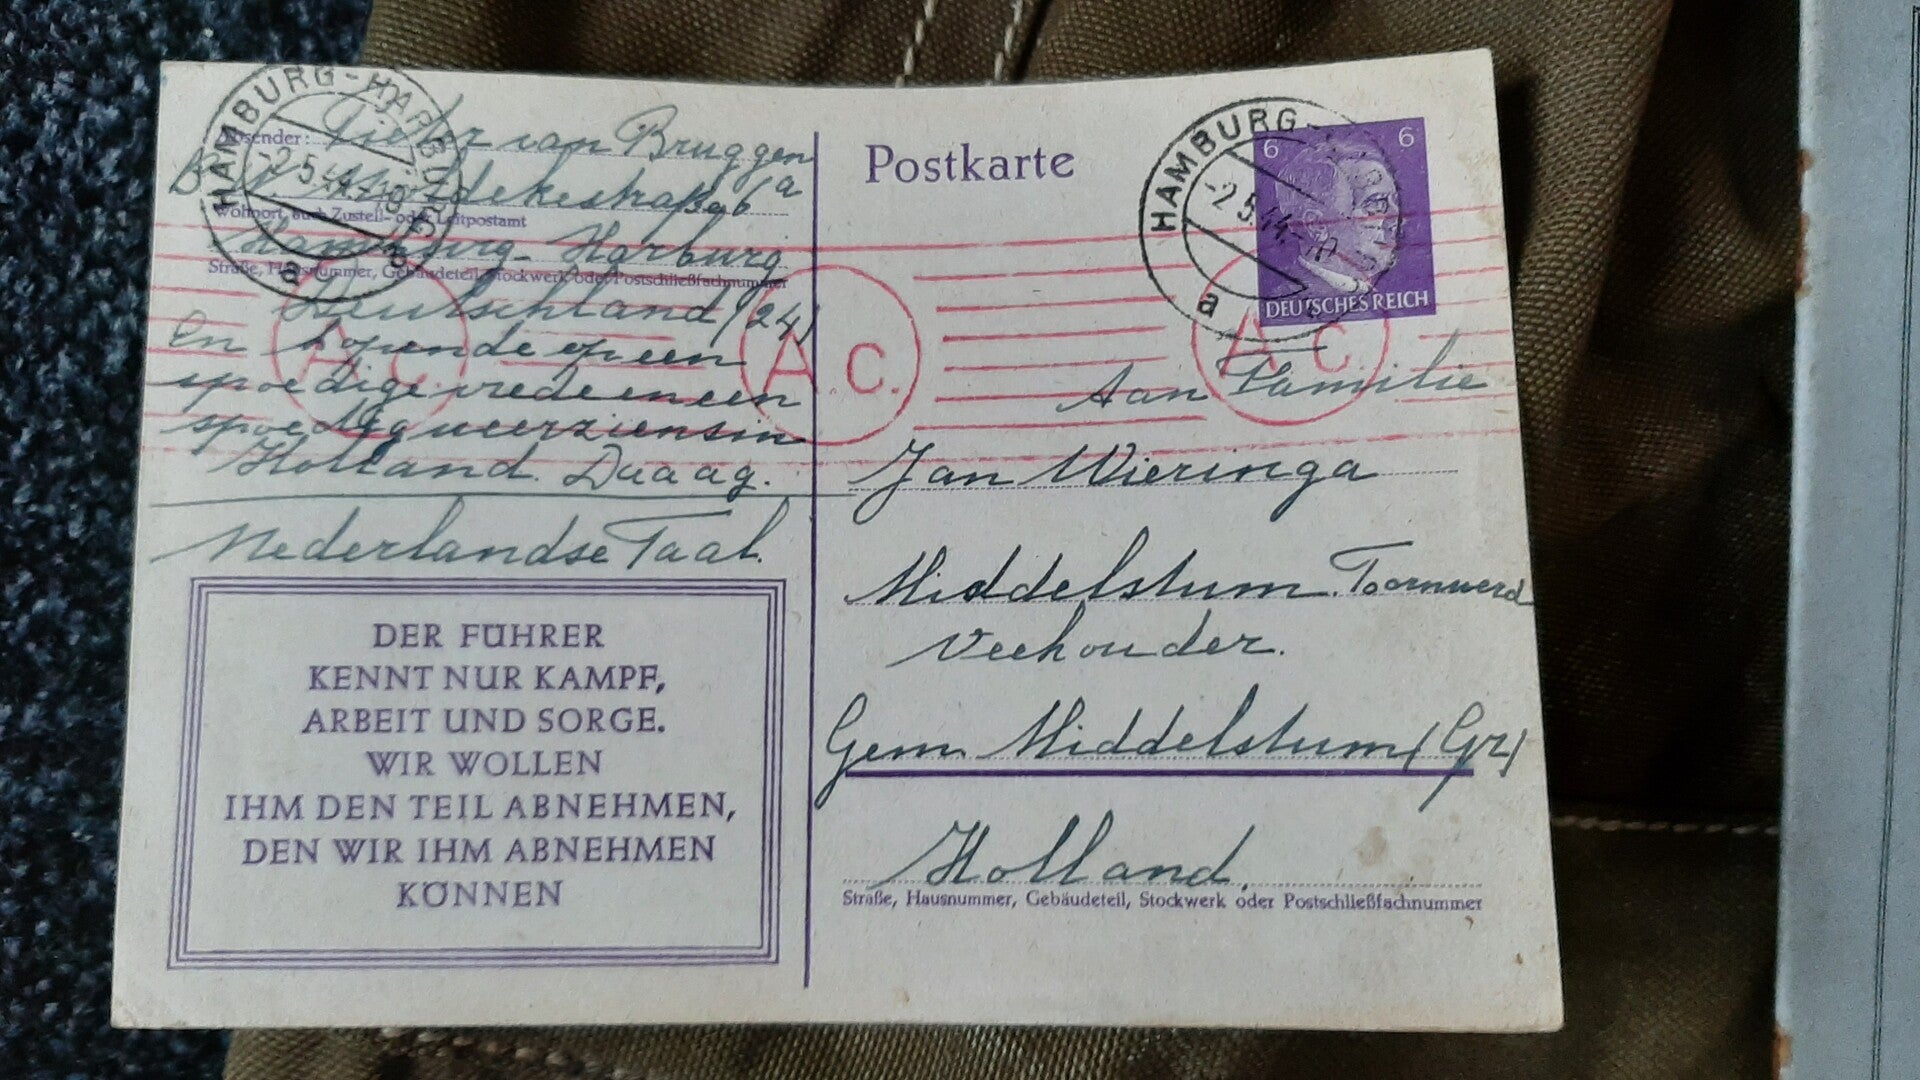 HAMBURG-HARBURG
-2.5.44.-19
a
Absender: Pieter van Bruggen
straße 6a
Wohnort, auch Zustell- oder Leitpostamt
Hamburg-Harburg
Straße, Hausnummer, Gebäudeteil, Stockwerk oder Postschließfachnummer
Deutschland (24)
En hopende op een
spoedige vrede en een
spoedig weerziens in
Holland. Daaag.
Nederlandse Taal.
DER FÜHRER
KENNT NUR KAMPF,
ARBEIT UND SORGE.
WIR WOLLEN
IHM DEN TEIL ABNEHMEN,
DEN WIR IHM ABNEHMEN
KÖNNEN
Postkarte
HAMBURG-HARBURG
-2.5.44.-19
a
6 6
DEUTSCHES REICH
A.c. A.c. A.c.
Aan Familie
Jan Wieringa
Middelstum. Toornwerd
Veehouder.
Gem. Middelstum (Gr)
Holland.
Straße, Hausnummer, Gebäudeteil, Stockwerk oder Postschließfachnummer